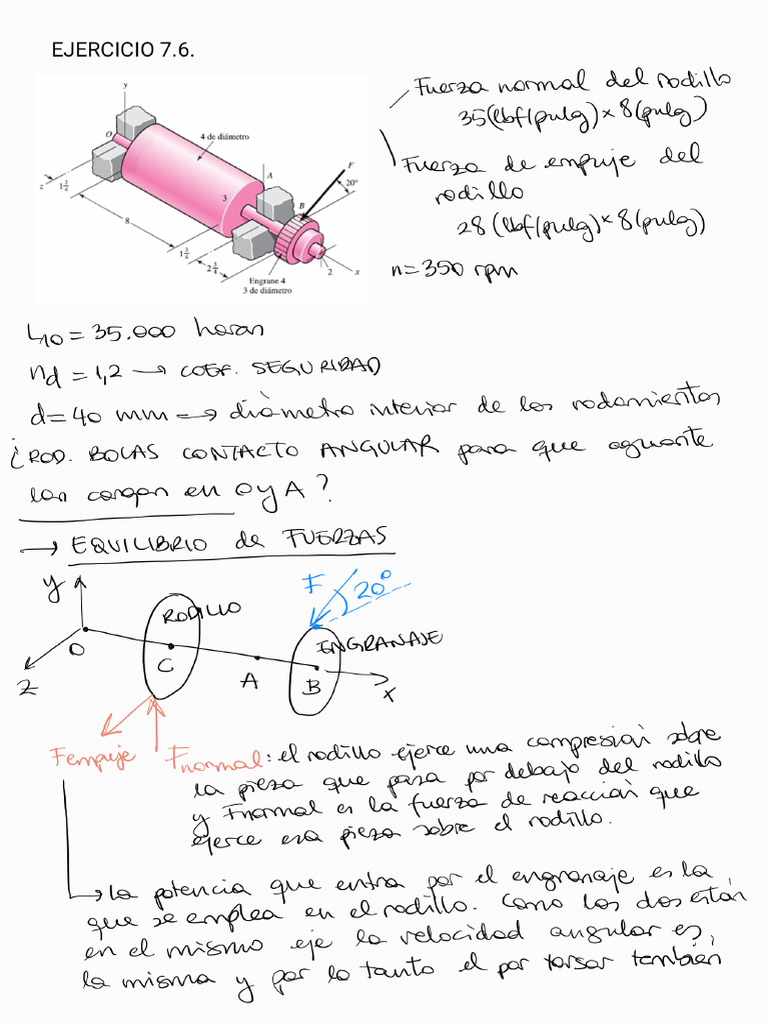 EJERCICIO 7.6.
y
O
4 de diámetro
z
1 3/4
8
3
A
B
F
20°
1 3/4
2 3/4
2
x
Engrane 4
3 de diámetro
Fuerza normal del rodillo
35(lbf/pulg)×8(pulg)
Fuerza de empuje del
rodillo
28(lbf/pulg)×8(pulg)
n=350 rpm
L10=35.000 horas
nd=1,2→COEF. SEGURIDAD
d=40 mm→diámetro interior de los rodamientos
¿ROD. BOLAS CONTACTO ANGULAR para que aguante
las cargas en O y A?
→ EQUILIBRIO de FUERZAS
y
RODILLO
F
20°
ENGRANAJE
O
C
A
B
x
z
Fempuje
Fnormal: el rodillo ejerce una compresión sobre
la pieza que pasa por debajo del rodillo
y Fnormal es la fuerza de reacción que
ejerce esa pieza sobre el rodillo.
→ La potencia que entra por el engranaje es la
que se emplea en el rodillo. Como los dos están
en el mismo eje la velocidad angular es
la misma y por lo tanto el par torsor también